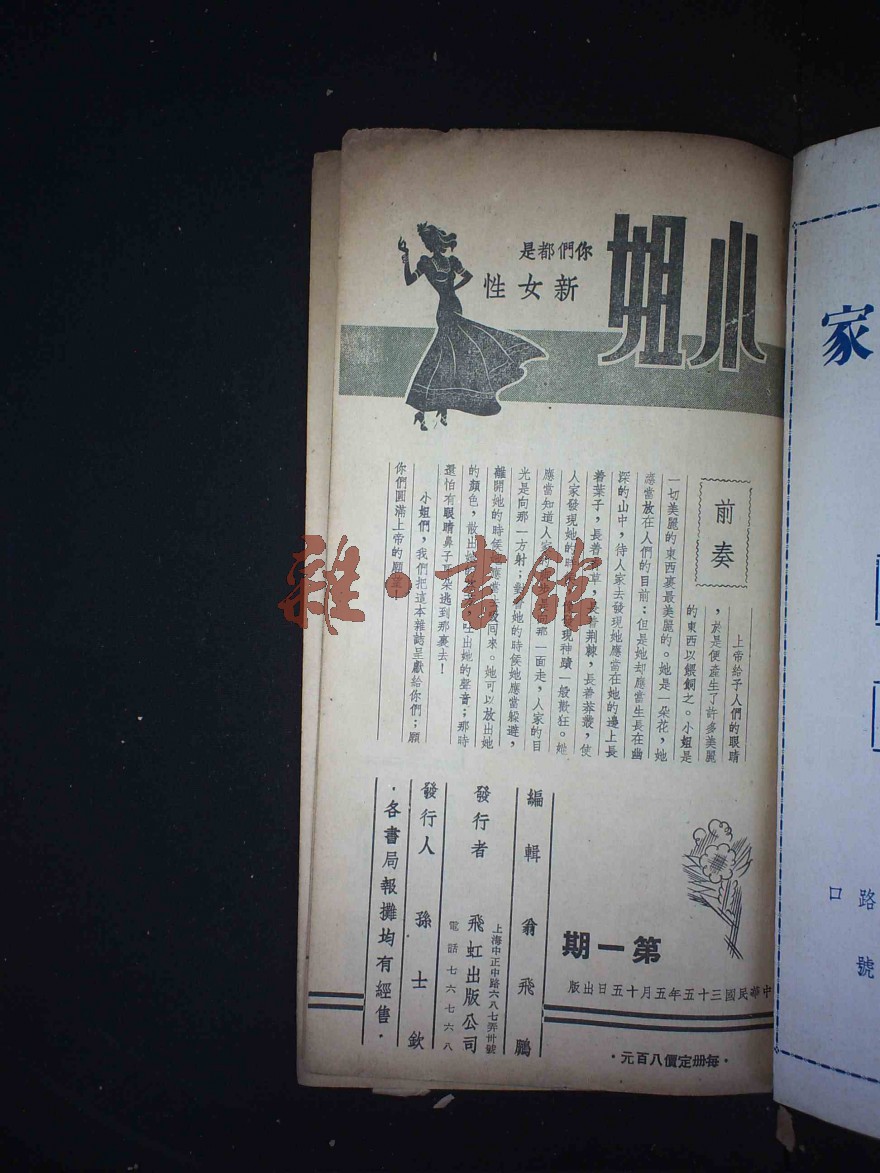 小姐
你們都是
新女性
前奏
上帝給予人們的眼睛
，於是便產生了許多美麗
的東西以餵飼之。小姐是
一切美麗的東西裏最美麗的。她是一朵花，她
應當放在人們的目前；但是她却應當生長在幽
深的山中，待人家去發現她應當在她的邊上長
着葉子，長着 草，長着荆棘，長着莽叢，使
人家發現她的時 發現神蹟一般歡狂。她
應當知道人家 那一面走，人家的目
光是向那一方射； 她的時候她應當躲避，
離開她的時候她應當 般囘來。她可以放出她
的顏色，散出她 吐出她的聲音；那時
還怕有眼睛鼻子耳朵逃到那裏去！
小姐們，我們把這本雜誌呈獻給你們；願
你們圓滿上帝的願
第一期
中華民國三十五年五月十五日出版
·每册定價八百元·
編輯 翁飛鵬
發行者 飛虹出版公司
上海中正中路六八七弄卅號
電話七六七六八
發行人 孫士欽
·各書局報攤均有經售·
家
路
口
號
雜·書館